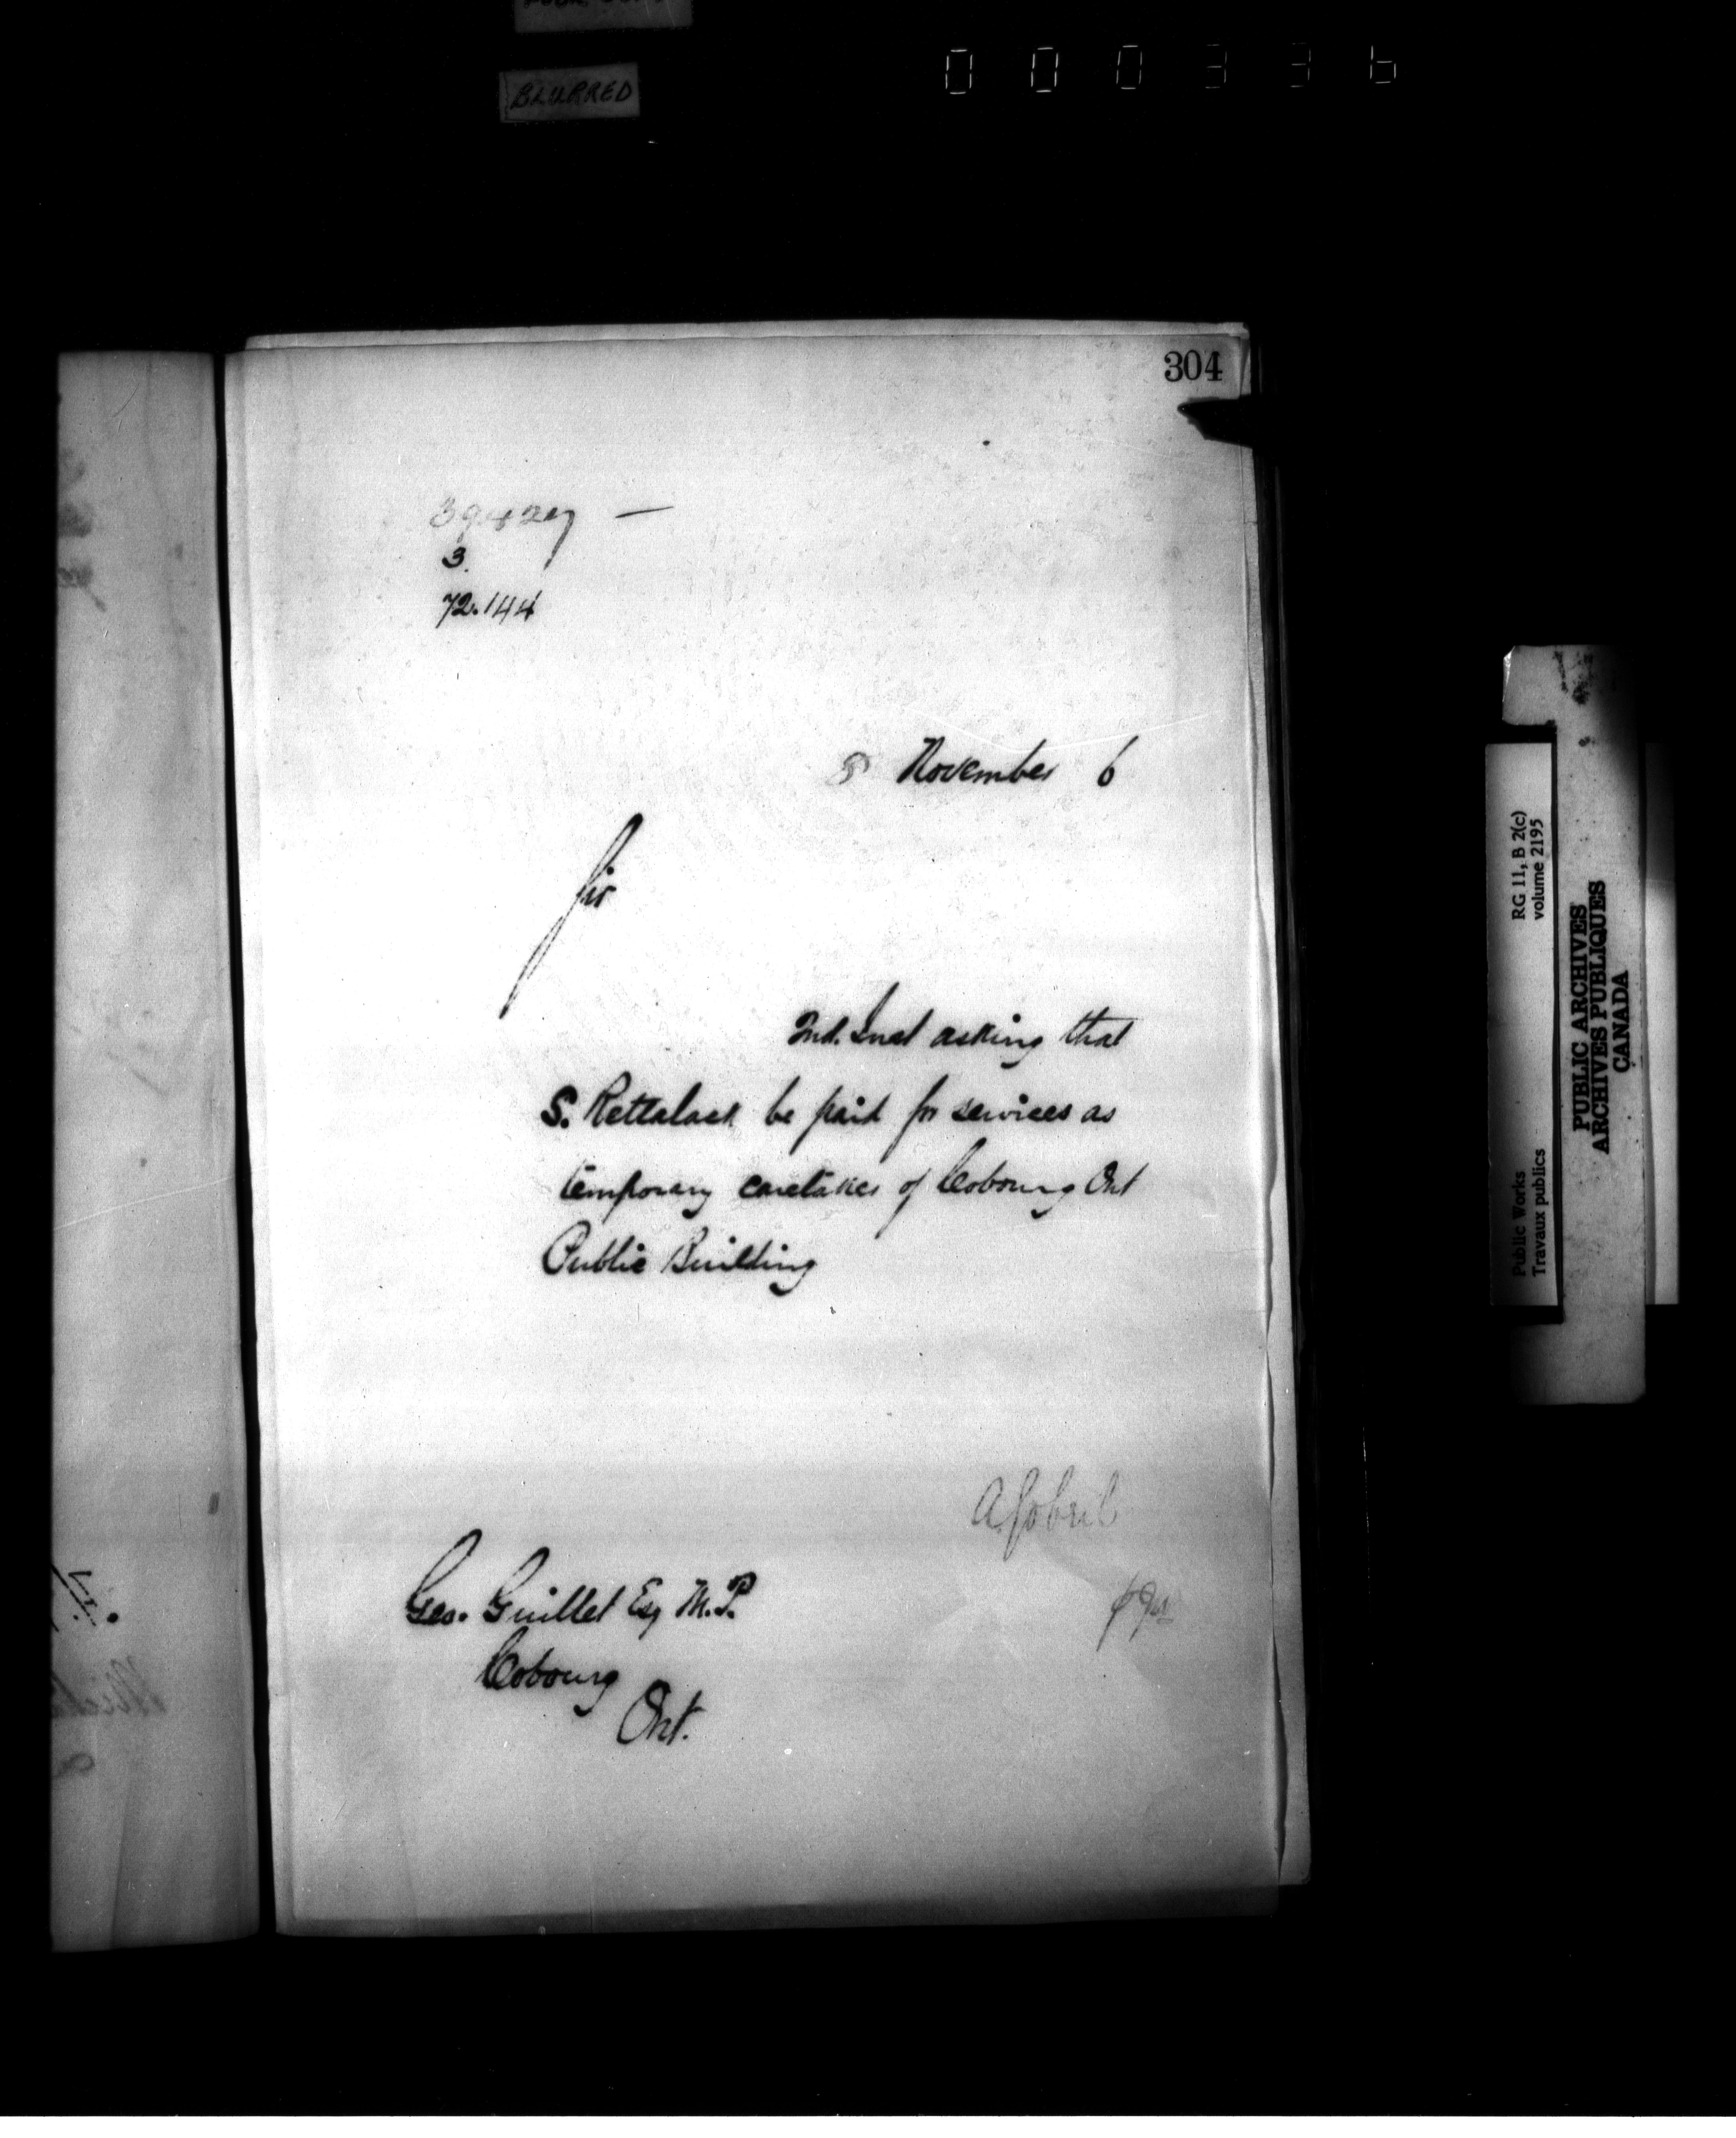 BLURRED
000336
304
39427 —
3.
72.144
8 November 6
Sir
2nd. Inst asking that
S. Rettalack be paid for services as
temporary caretaker of Cobourg Ont
Public Building
A. Gobeil
Geo. Guillet Esq M.P.
Cobourg
Ont.
Public Works RG 11, B 2(c)
Travaux publics volume 2195
PUBLIC ARCHIVES
ARCHIVES PUBLIQUES
CANADA